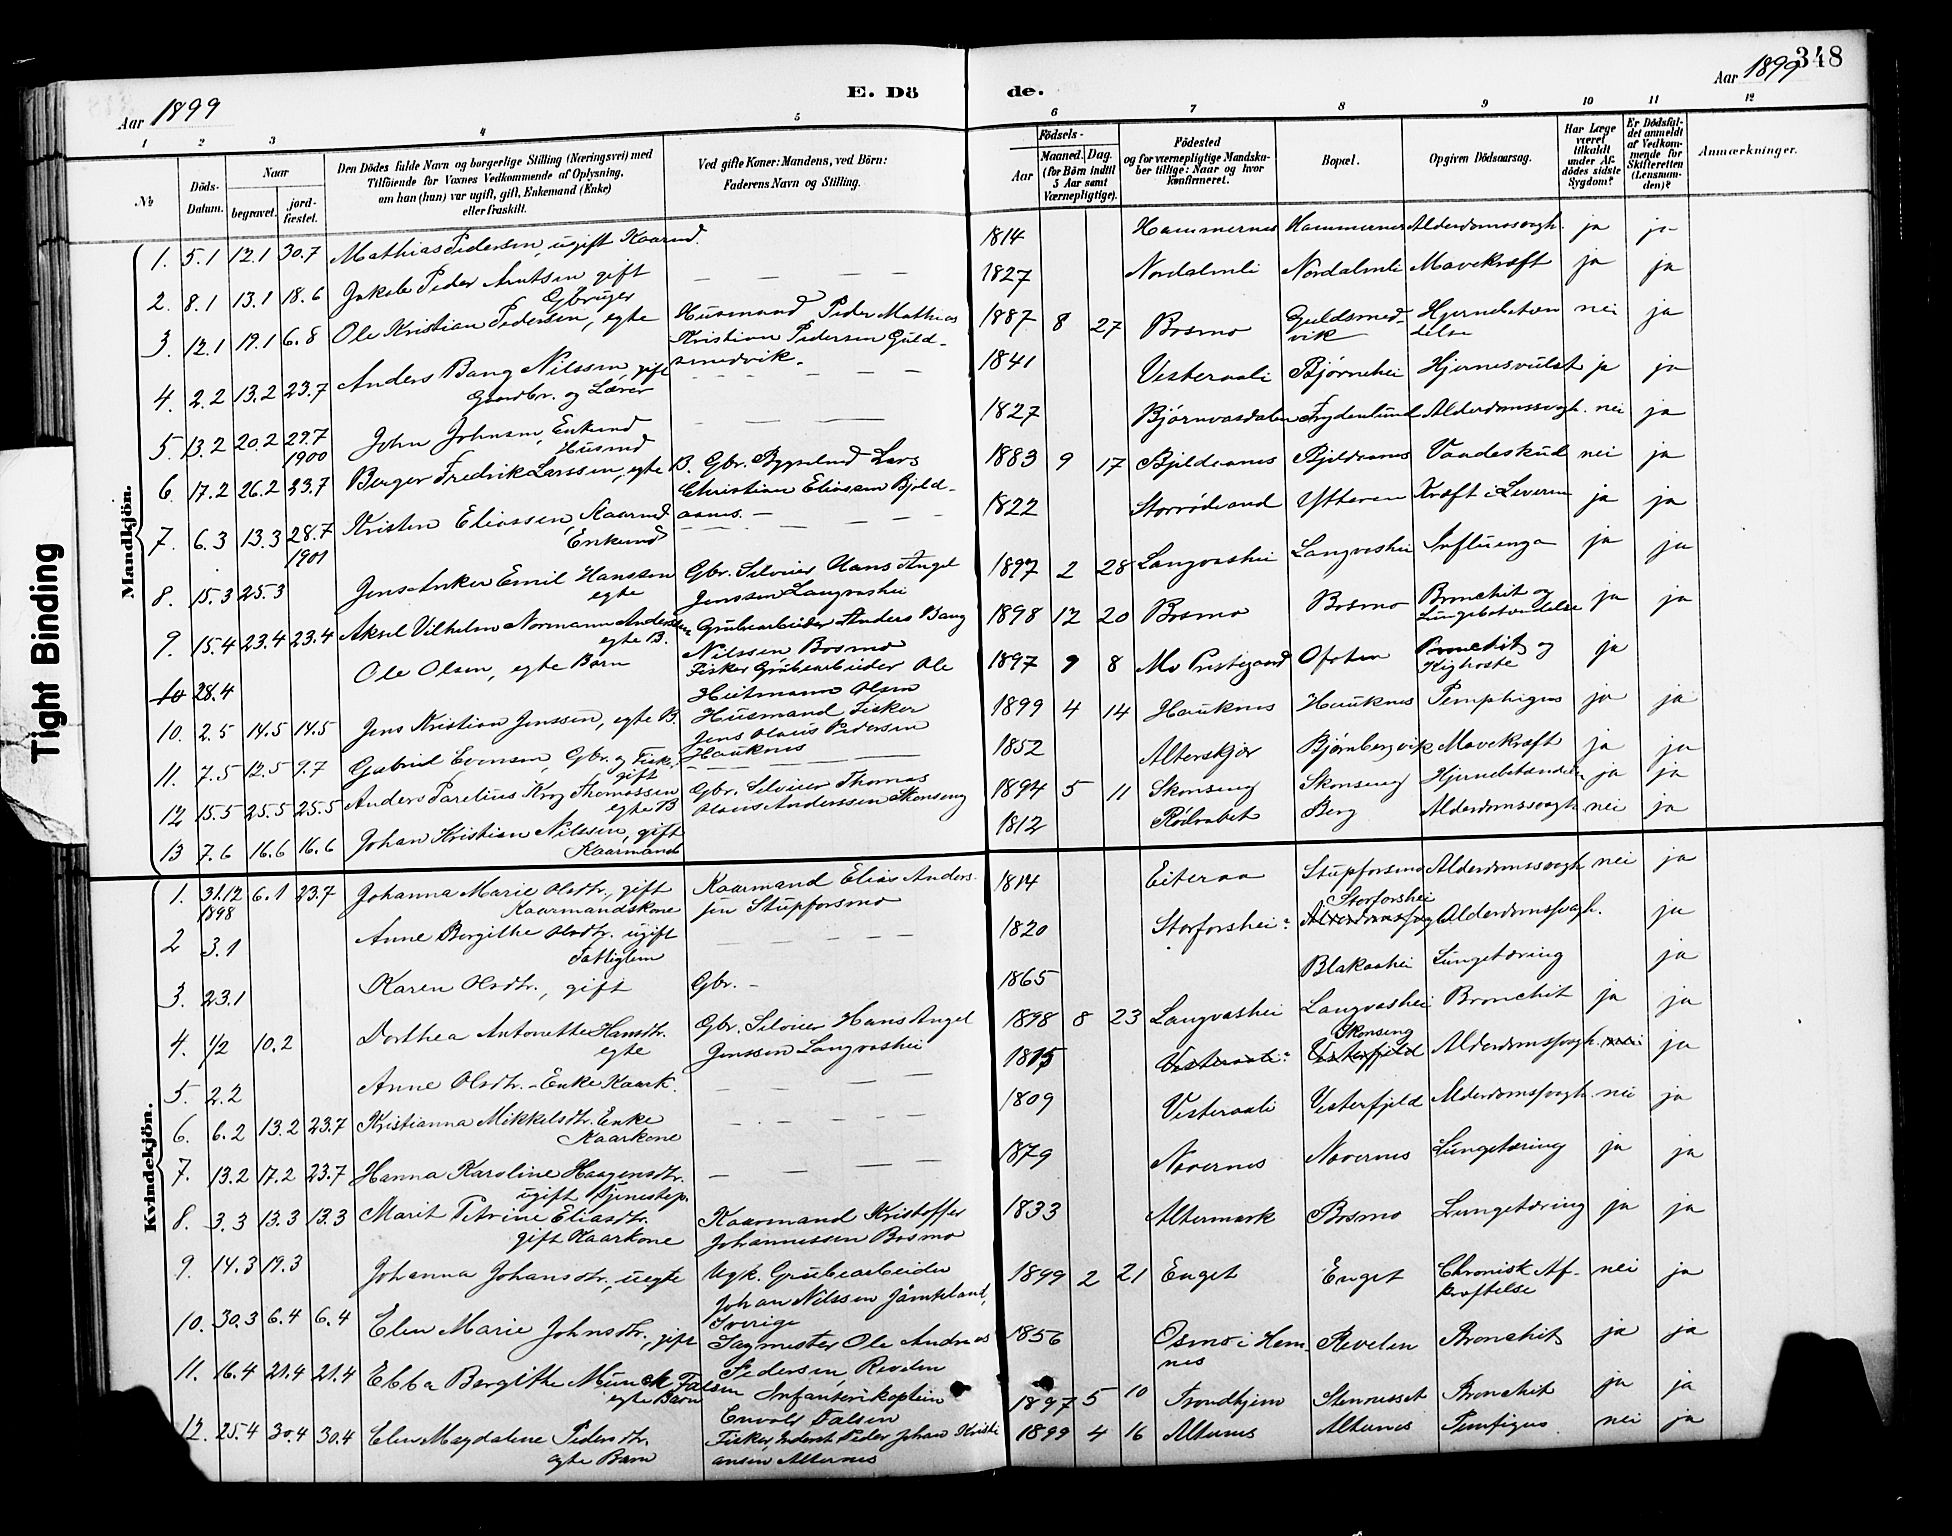 Tight Binding
348
Aar 1899
E. Dö
de.
Aar 1899
1 2 3 4 5 6 7 8 9 10 11 12
№
Döds-
Datum.
Naar
begravet.
jord-
fæstet.
Den Dödes fulde Navn og borgerlige Stilling (Næringsvei) med
Tilföiende for Voxnes Vedkommende af Oplysning,
om han (hun) var ugift, gift, Enkemand (Enke)
eller fraskilt.
Ved gifte Koner: Mandens, ved Börn:
Faderens Navn og Stilling.
Födsels-
Aar
Maaned. Dag.
(for Börn indtil
5 Aar samt
Værnepligtige).
Födested
og for værnepligtige Mandsku-
ber tillige: Naar og hvor
konfirmeret.
Bopæl.
Opgiven Dödsaarsag.
Har Læge
været
tilkaldt
under Af-
dödes sidste
Sygdom?
Er Dödsfal-
det anmeldt
af Vedkom-
mende for
Skifteretten
(Lensman-
den)?
Anmærkninger.
Mandkjön.
1. 5.1 12.1 30.7 Mathias Pedersen, ugift Kaarmd. 1814 Hammernes Hammernes Alderdomssvagh. ja ja
2. 8.1 13.1 18.6 Jakob Peder Arntsen gift — — — — 1827 Nordalmli Nordalmli Mavekræft ja ja
Gbruger
3. 12.1 19.1 6.8 Ole Kristian Pedersen, egte Husmand Peder Mathias 1887 8 27 Bosmo Guldsmed- Hjernebetæn nei ja
Kristian Pedersen Guld- vik delse
smedvik.
4. 2.2 13.2 23.7 Anders Bang Nilssen, gift — — — — 1841 Vesteraali Bjørnehei Hjernesvulst ja ja
Gaardbr. og Lærer
5. 13.2 20.2 29.7 John Johnsen, Enkemd — — — 1827 Bjørnvasdalen Frydenlund Alderdomssvagh. nei ja
1900 Husmd
6. 17.2 26.2 23.7 Berger Fredrik Larssen, egte B. Gbr. Bygselmd Lars 1883 9 17 Bjeldaanes Bjeldaanes Vaadeskud nei ja
Christian Eliassen Bjeld-
aanes. —
7. 6.3 13.3 28.7 Kristen Eliassen, Kaarmd — — — — 1822 Storrødvand Ytteren Kræft i Leveren ja ja
1901 Enkemd
8. 15.3 25.3 Jens Anker Emil Hanssen Gbr. Selveier Hans Angel 1897 2 28 Langvashei Langvashei Influenza ja ja
egte Jenssen Langvashei
9. 15.4 23.4 23.4 Aksel Vilhelm Normann Anderssen Grubearbeider Anders Bang 1898 12 20 Bosmo Bosmo Bronchit og ja ja
egte B. Nilssen, Bosmo Lungebetændelse
10 28.4 Ole Olsen, egte Barn Fisker Grubearbeider Ole 1897 9 8 Mo Prestegaard Ofoten Bronchit og ja
Heitmann Olsen Kighoste
10. 2.5 14.5 14.5 Jens Kristian Jenssen, egte B. Husmand Fisker 1899 4 14 Hauknes Hauknes Pemphigus ja ja
Jens Olaus Pedersen
Hauknes
11. 7.5 12.5 9.7 Gabriel Evensen, Gbr. og Fisk. — — — 1852 Alterskjær Bjørnbergvik Mavekræft ja ja
gift
12 15.5 25.5 25.5 Anders Parelius Krog Thomassen Gbr. Selveier Thomas 1894 5 11 Skonseng Skonseng Hjernebetændelse ja ja
egte B Olaus Anderssen Skonseng
13 7.6 16.6 16.6 Johan Kristian Nilssen, gift 1812 Rödvabet Berg Alderdomssvagh. nei ja
Kaarmand
Kvindekjön.
1. 31.12 6.1 23.7 Johanna Marie Olsdtr., gift Kaarmand Elias Anders- 1814 Eiteraa Stupforsmo Alderdomssvagh nei ja
1898 Kaarmandskone sen Stupforsmo
2 3.1 Anne Bergithe Olsdtr. ugift — — — — 1820 Storforshei: Storforshei Alderdomssvagh. ja
Fattiglem
3. 23.1 Karen Olsdtr., gift Gbr. — 1865 Blakaahei Lungetæring ja
4. 1/2 10.2 Dorthea Antonette Hansdtr. Gbr. Selveier Hans Angel 1898 8 23 Langvashei Langvashei Bronchit ja ja
egte Jenssen Langvashei
5. 2.2 Anne Olsdtr. - Enke Kaark. — — — — 1815 Vesteraali: Vesterfjeld Skonseng Alderdomssvagh. nei ja
6. 6.2 13.2 23.7 Kristianna Mikkelsdtr. Enke — — — — 1809 Vesteraali Vesterfjeld Alderdomssvagh. nei ja
Kaarkone
7. 13.2 17.2 23.7 Hanna Karoline Haagensdtr. — — — — 1879 Navernes Navernes Lungetæring ja ja
ugift Tjenestep.
8. 3.3 13.3 13.3 Marit Petrine Eliasdtr. Kaarmand Kristoffer 1833 Altermark Bosmo Lungetæring ja ja
gift Kaarkone Johannessen Bosmo
9. 14.3 19.3 Johanna Johansdtr., uegte Ugk. Grubearbeider 1899 2 21 Enget Enget Chronisk Af- nei ja
Johan Nilssen Jämtland, kræftelse
Sverige
10. 30.3 6.4 6.4 Elen Marie Johnsdtr., gift Sagmester Ole Andreas 1856 Osmo i Hem- Revelen Bronchit ja ja
Pedersen, Revelen nes
11. 16.4 21.4 21.4 Ebba Bergithe Munck Falsen Infanterikaptein 1897 5 10 Trondhjem Stenneset Bronchit ja ja
egte Barn Envold Falsen
12. 25.4 30.4 30.4 Elen Magdalene Pedersdtr. Fisker, Inderst Peder Johan Kristi 1899 4 16 Alternes Alternes Pemfigus nei ja
egte Barn ansen Alternes